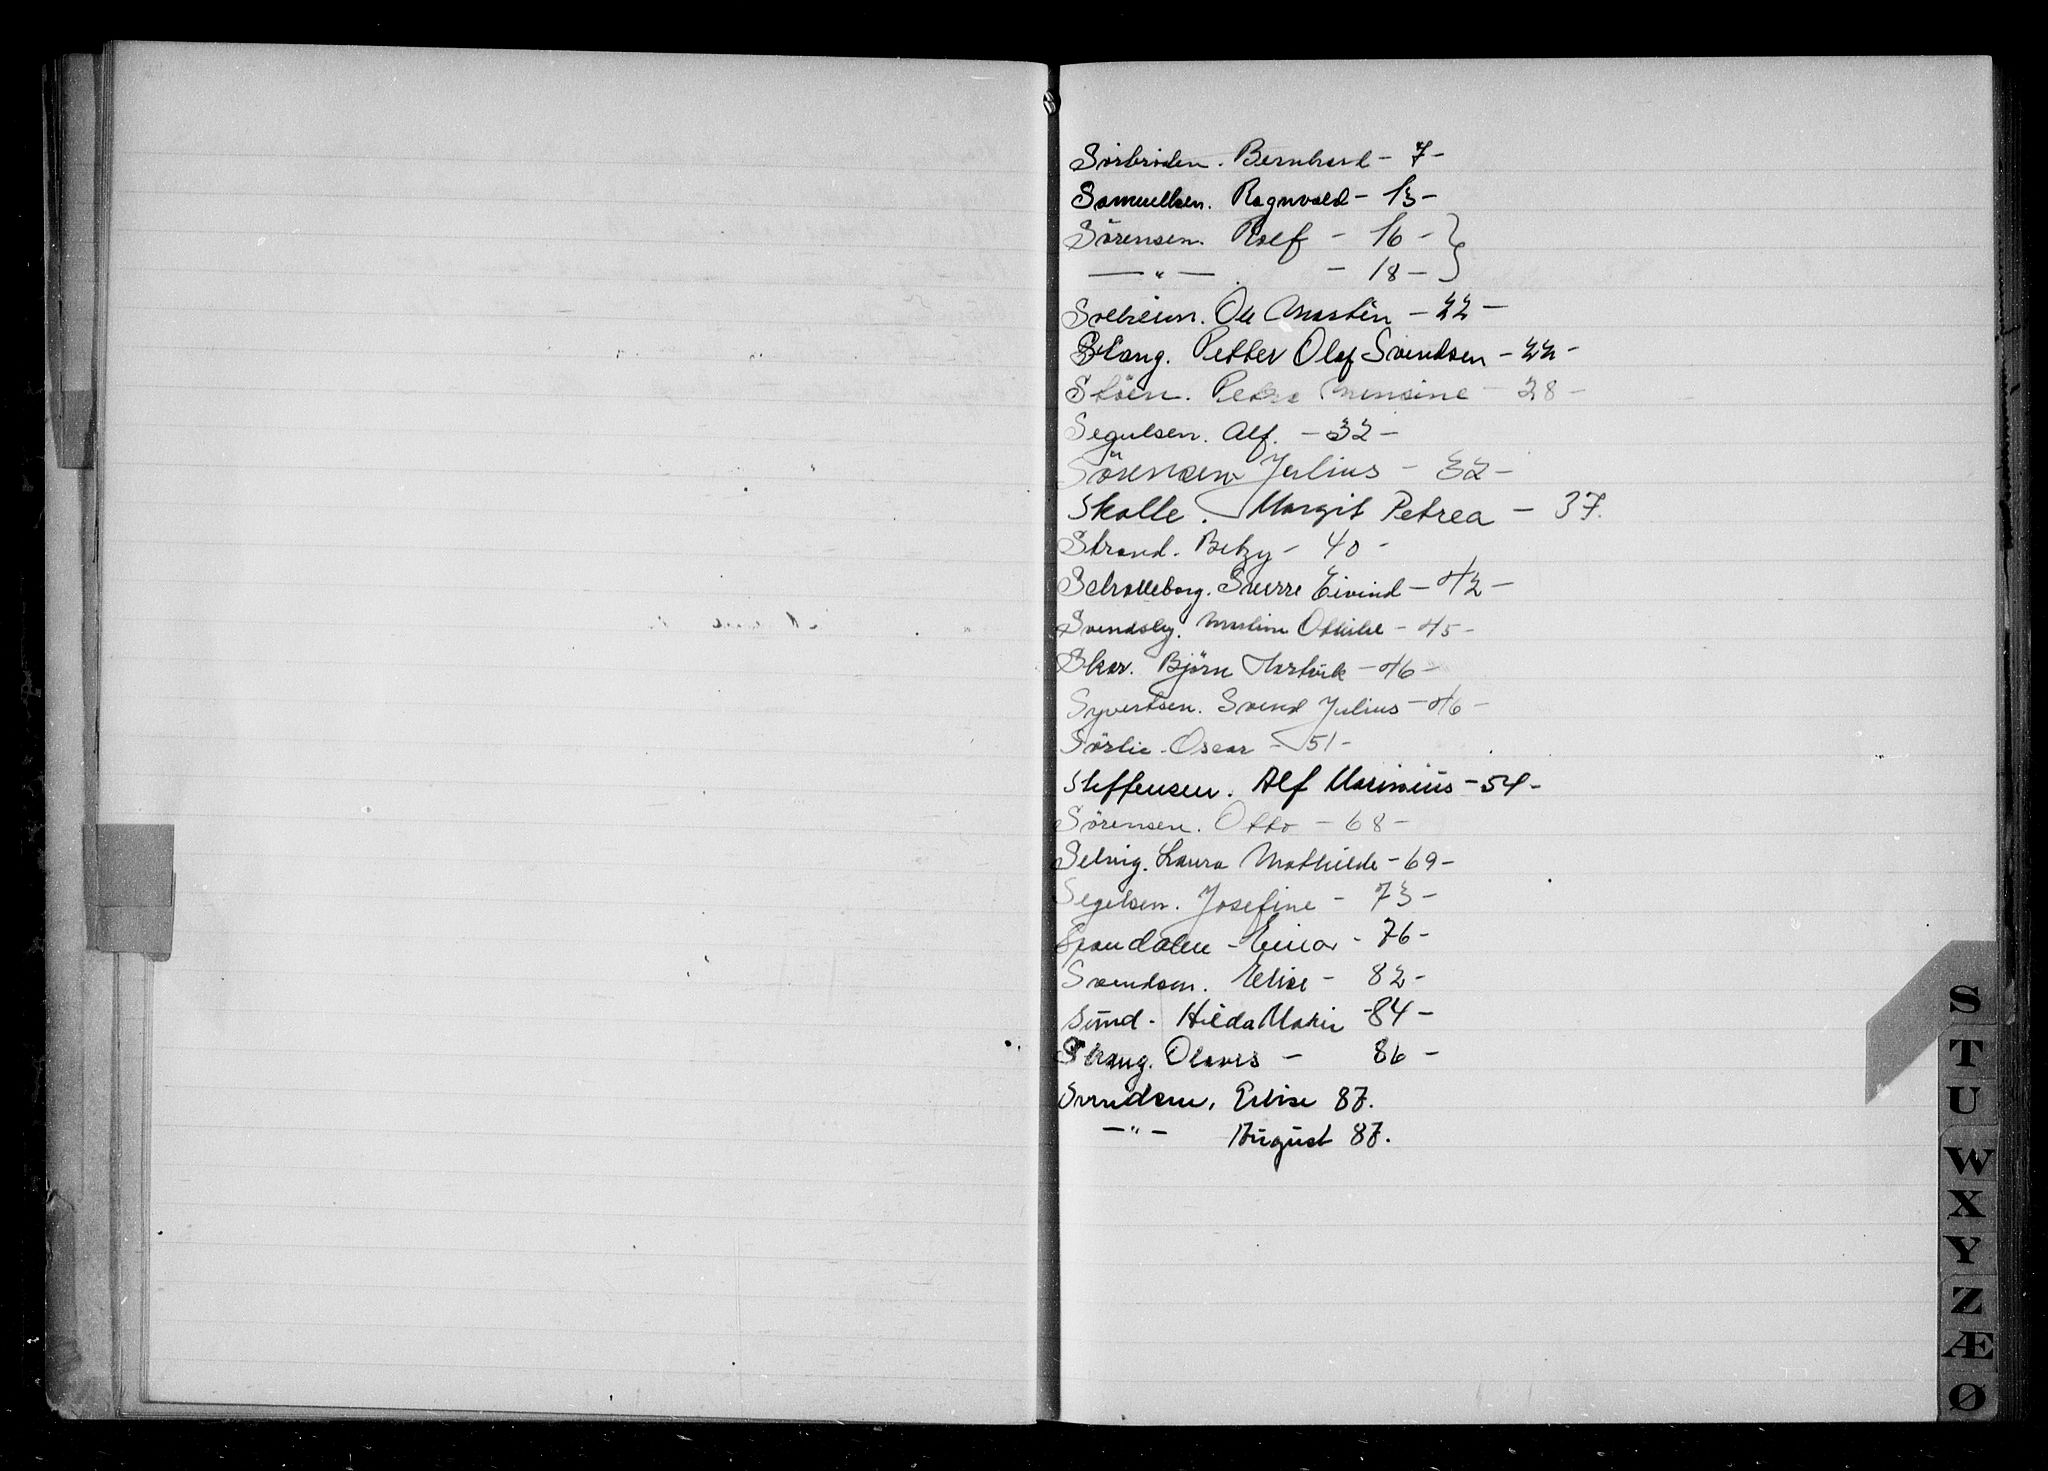 Sörbröden. Bernhard - 7 -
Samuelsen. Ragnvald - 13 -
Sörensen. Rolf - 16 - }
—"— - 18 - }
Solheim. Ole Martin - 22 -
Stang. Petter Olaf Svendsen - 22 -
Stöen. Petra - 28 -
Segulsen. Alf. - 32 -
Sörensen Julius - 32 -
Skolle. Margit Petrea - 37.
Strand. Betzy - 40 -
Schrolleborg. Sverre Eivind - 42 -
Svendsby. Martine Othilie - 45 -
Skar. Björn Hartvik - 46 -
Syvertsen. Svend Julius - 46 -
Sörlie - Oscar - 51 -
Steffensen. Alf Marinius - 54 -
Sörensen. Otto - 68 -
Selvig. Laura Mathilde - 69 -
Segelsen. Josefine - 73 -
Grandalen - Einar - 76 -
Svendsen. Elise - 82 -
Sund - Hilda Marie - 84 -
Stang. Olaves - 86 -
Svendsen, Elise 87.
—"— August 87.
S
T
U
W
X
Y
Z
Æ
Ø